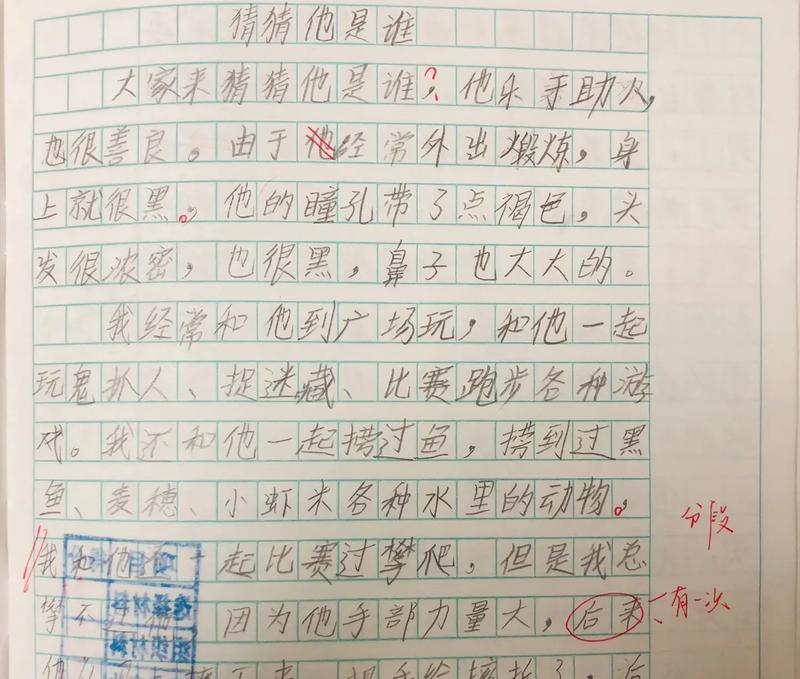 猜猜他是谁
大家来猜猜他是谁？他乐于助人，
也很善良。由于他经常外出煅炼，身
上就很黑。他的瞳孔带了点褐色，头
发很浓密，也很黑，鼻子也大大的。
我经常和他到广场玩，和他一起
玩鬼抓人、捉迷藏、比赛跑步各种游
戏。我还和他一起捞过鱼，捞到过黑
鱼、麦穗、小虾米各种水里的动物。
分段
我和他 一起比赛过攀爬，但是我总
攀不 因为他手部力量大，后来 有一次